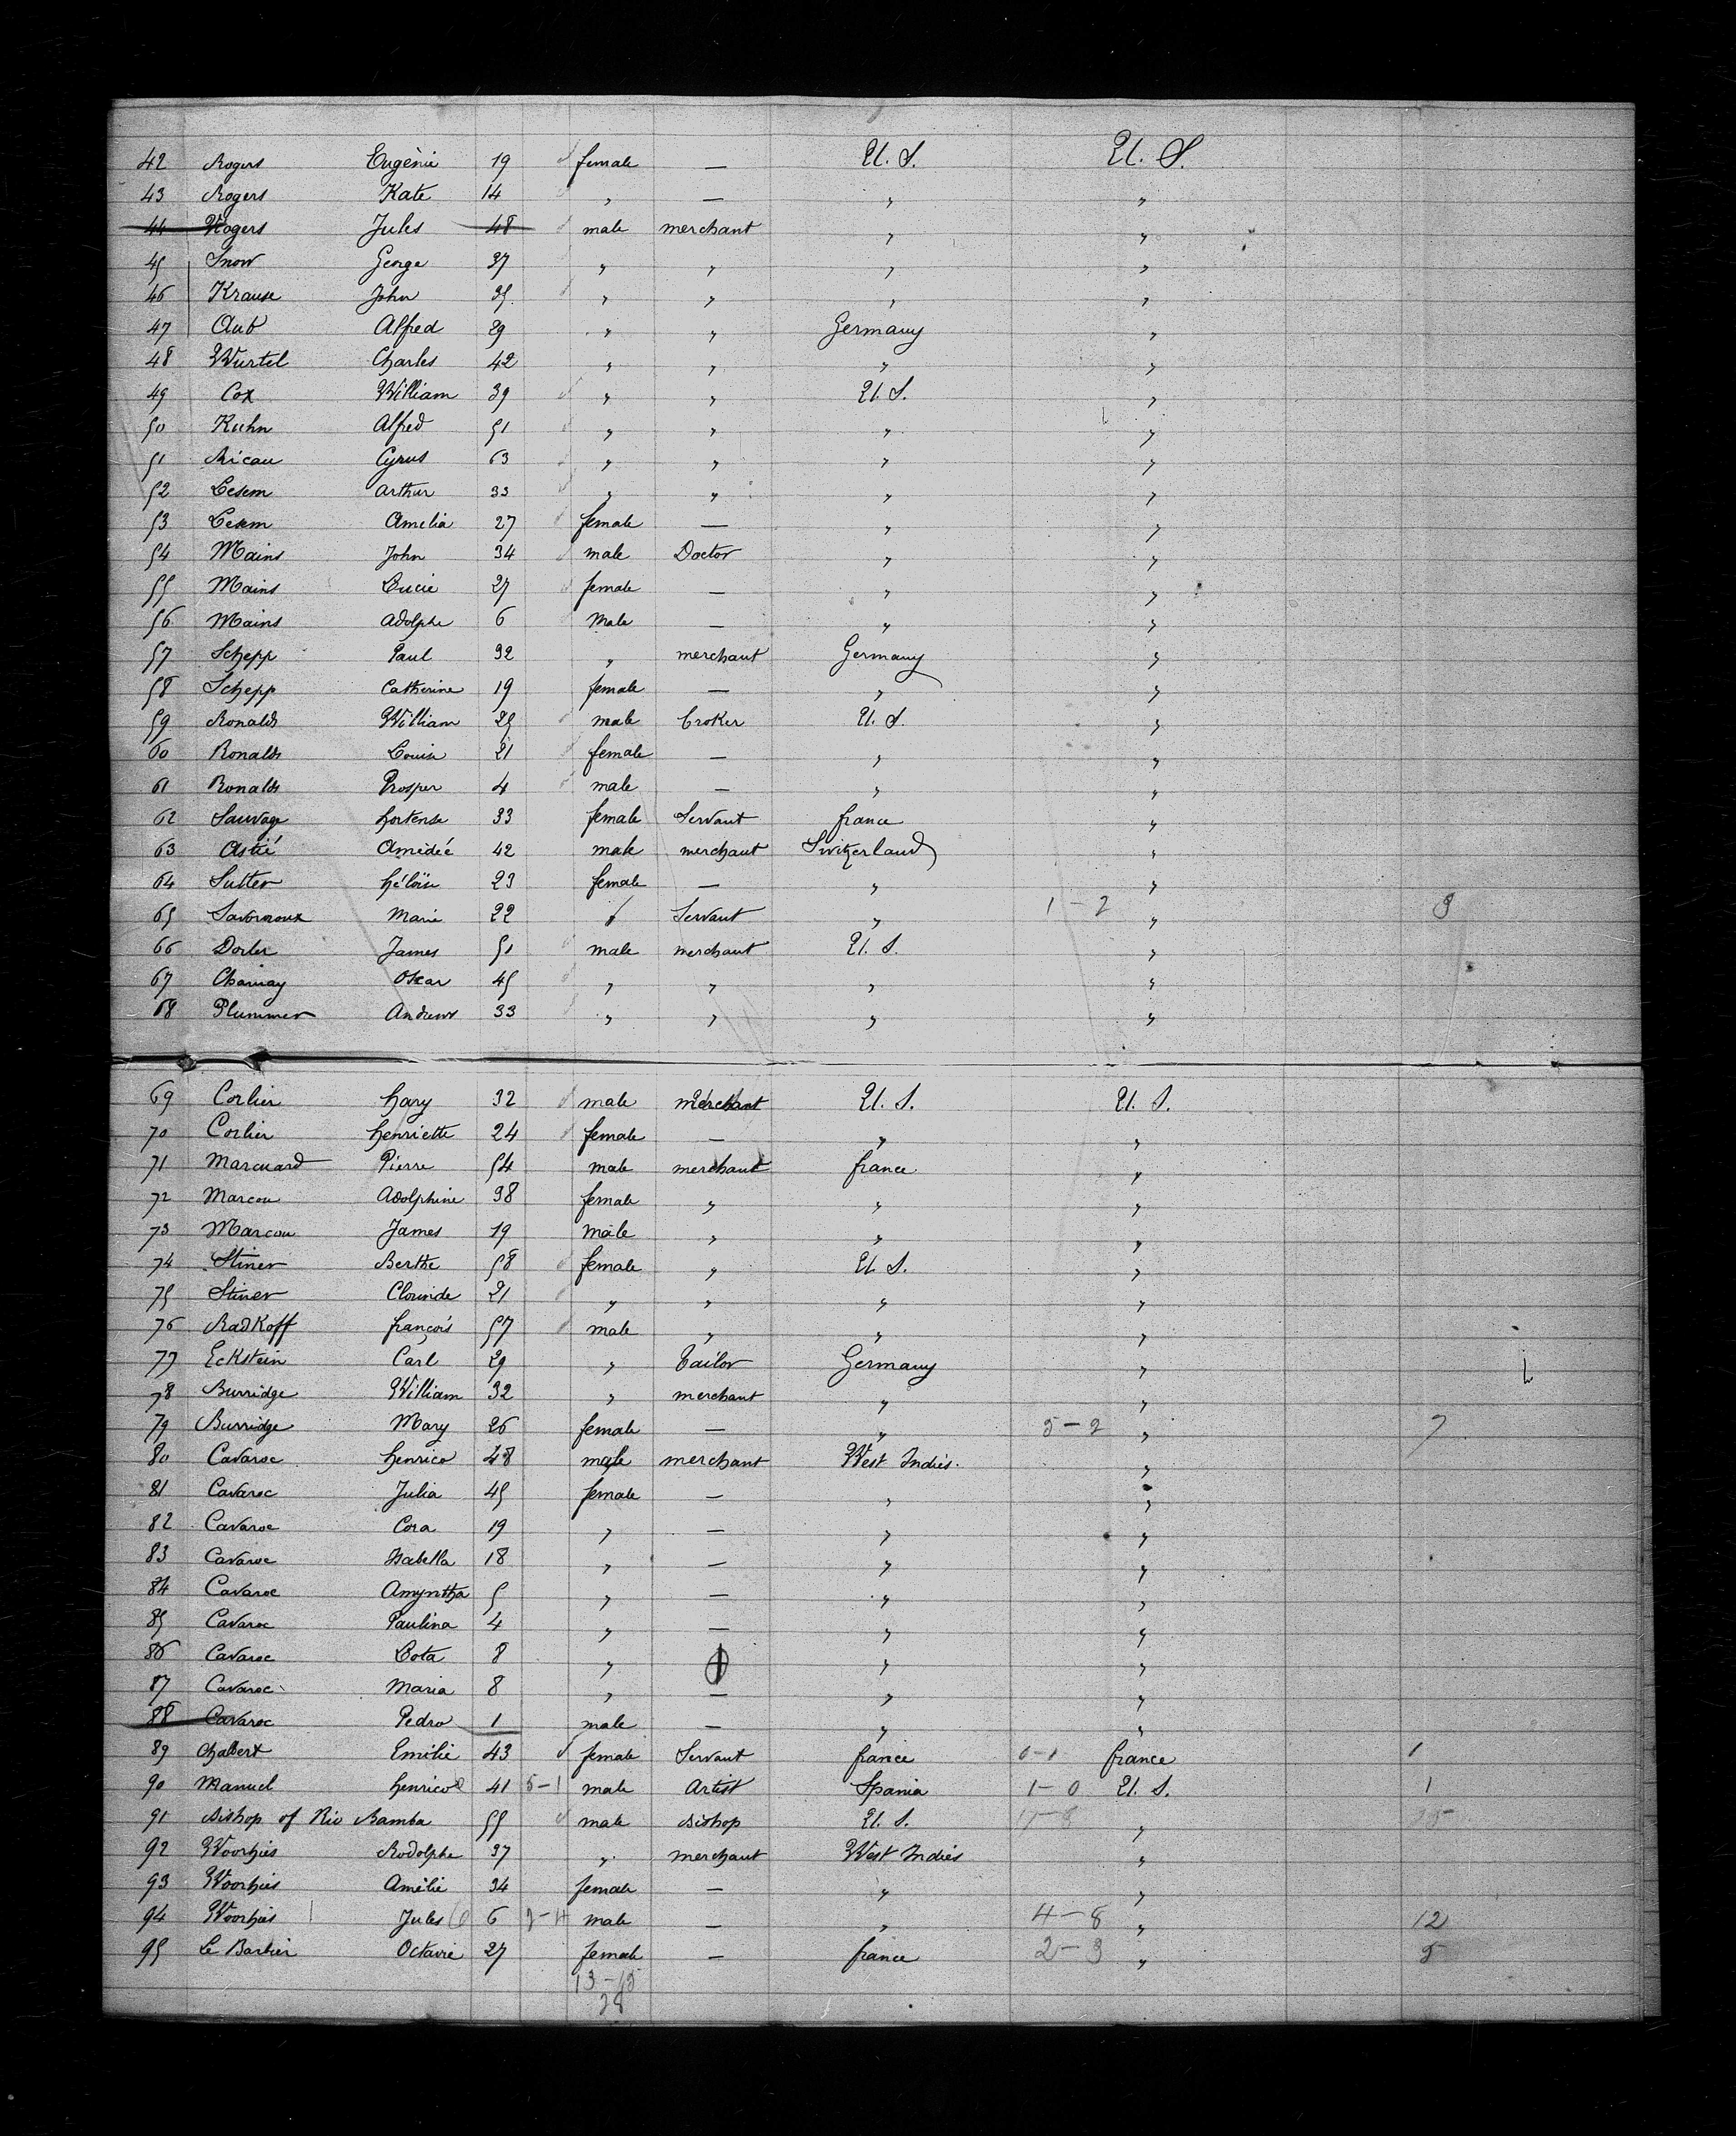 42 Rogers Eugènie 19 female — U. S. U. S.
43 Rogers Kate 14 " — " "
44 Rogers Jules 48 male merchant " "
45 Snow George 37 " " " "
46 Krause John 35 " " " "
47 Aub Alfred 29 " " Germany "
48 Wurtel Charles 42 " " " "
49 Cox William 39 " " U. S. "
50 Kuhn Alfred 51 " " " "
51 Micau Cyrus 63 " " " "
52 Lesem Arthur 33 " " " "
53 Lesem Amelia 27 female — " "
54 Mains John 34 male Doctor " "
55 Mains Lucie 27 female — " "
56 Mains Adolphe 6 Male — " "
57 Schepp Paul 32 " merchant Germany "
58 Schepp Catherine 19 female — " "
59 Ronalds William 25 male broker U. S. "
60 Ronalds Louise 21 female — " "
61 Ronalds Prosper 4 male — " "
62 Sauvage hortense 33 female Servant france "
63 Astié Amédéé 42 male merchant Switzerland "
64 Sutter héloïse 23 female — " "
65 Marie 22 Servant " 1-2 " 3
66 James 51 male merchant U. S. "
67 Charnay Oscar 45 " " " "
68 Plummer Andrew 33 " " " "
69 Corlier hary 32 male merchant U. S. U. S.
70 Corlier henriette 24 female — " "
71 Marcuard Pierre 54 male merchant france "
72 Marcou Adolphine 38 female " " "
73 Marcou James 19 male " " "
74 Stiner Berthe 58 female " U. S. "
75 Stiner Clorinde 21 " " " "
76 Radkoff françois 57 male " " "
77 Eckstein Carl 29 " tailor Germany "
78 Burridge William 32 " merchant " "
79 Burridge Mary 26 female — " 5-2 " 7
80 Cavaroc henrico 48 male merchant West Indies "
81 Cavaroc Julia 45 female — " "
82 Cavaroc Cora 19 " — " "
83 Cavaroc Isabella 18 " — " "
84 Cavaroc Amyntha 5 " — " "
85 Cavaroc Paulina 4 " — " "
86 Cavaroc Lota 8 " " "
87 Cavaroc Maria 8 " — " "
88 Cavaroc Pedro 1 male — " "
89 Chabert Emilie 43 female Servant france 0-1 france 1
90 Manuel henrico 41 5-1 male Artist Spania 1-0 U. S. 1
91 Bishop of Rio Bamba 55 male Bishop U. S. 7-8 " 15
92 Woorhies Rodolphe 37 " merchant West Indies "
93 Woorhies Amélie 34 female — " "
94 Woorhies Jules 6 male — " 4-8 " 12
95 Le Barbier Octavie 27 female — france 2-3 " 5
13-15
28